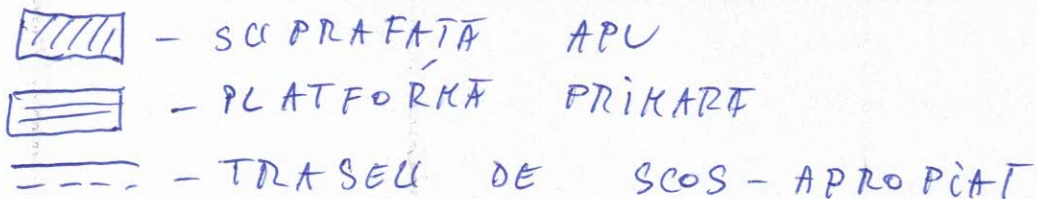 - SUPRAFAȚĂ APV
- PLATFORMĂ PRIMARĂ
- TRASEU DE SCOS-APROPIAT